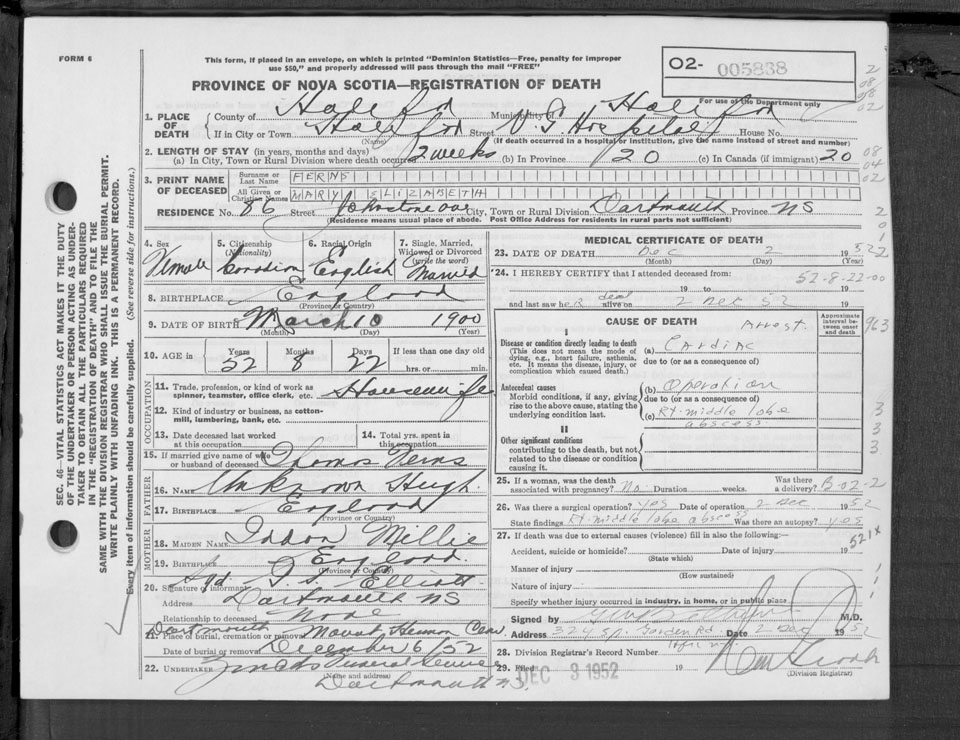 FORM 6
This form, if placed in an envelope, on which is printed "Dominion Statistics—Free, penalty for improper
use $50," and properly addressed will pass through the mail "FREE"
O2- 005838
PROVINCE OF NOVA SCOTIA—REGISTRATION OF DEATH
For use of the Department only
1. PLACE OF DEATH
County of Municipality of
If in City or Town Street V.G. Hospital House No.
(Name) (If death occurred in a hospital or institution, give the name instead of street and number)
2. LENGTH OF STAY (in years, months and days)
(a) In City, Town or Rural Division where death occurred 2 weeks (b) in Province 20 (c) in Canada (if immigrant) 20
3. PRINT NAME OF DECEASED
Surname or Last Name FERNS
All Given or Christian Names MARY ELIZABETH
RESIDENCE No. 86 Street Johnstone ave City, Town or Rural Division Dartmouth Province NS
(Residence means usual place of abode. Post Office Address for residents in rural parts not sufficient)
4. Sex Female
5. Citizenship (Nationality) Canadian
6. Racial Origin English
7. Single, Married, Widowed or Divorced (write the word) Married
8. BIRTHPLACE England
(Province or Country)
9. DATE OF BIRTH March 10 1900
(Month) (Day) (Year)
10. AGE in Years 52 Months 8 Days 22 If less than one day old hrs. or min.
OCCUPATION
11. Trade, profession, or kind of work as
spinner, teamster, office clerk, etc. Housewife
12. Kind of industry or business, as cotton-
mill, lumbering, bank, etc.
13. Date deceased last worked
at this occupation
14. Total yrs. spent in
this occupation
15. If married give name of wife
or husband of deceased Thomas Ferns
FATHER
16. NAME Unknown Hugh
17. BIRTHPLACE England
(Province or Country)
MOTHER
18. MAIDEN NAME Millie
19. BIRTHPLACE England
(Province or Country)
20. Signature of informant Elliott
Address Dartmouth NS
Relationship to deceased None
21. Place of burial, cremation or removal Dartmouth Mount Hermon Cem
Date of burial or removal December 6/52
22. UNDERTAKER Funeral Service
(Name and address)
Dartmouth NS
MEDICAL CERTIFICATE OF DEATH
23. DATE OF DEATH Dec 2 1952
(Month) (Day) (Year)
24. I HEREBY CERTIFY that I attended deceased from:
52-8-22-00
19 to 19
and last saw her dead alive on 2 Dec 52 19
CAUSE OF DEATH
Approximate interval between onset and death
I
Disease or condition directly leading to death
(This does not mean the mode of
dying, e.g., heart failure, asthenia,
etc. It means the disease, injury, or
complication which caused death.)
(a) Cardiac Arrest
due to (or as a consequence of)
Antecedent causes
Morbid conditions, if any, giving
rise to the above cause, stating the
underlying condition last.
(b) Operation
due to (or as a consequence of)
(c) Rt. middle lobe
abscess
II
Other significant conditions
contributing to the death, but not
related to the disease or condition
causing it.
25. If a woman, was the death
associated with pregnancy? No Duration weeks. Was there a delivery? B-02-2
26. Was there a surgical operation? yes Date of operation 2 Dec 1952
State findings Rt. middle lobe abscess Was there an autopsy? yes
27. If death was due to external causes (violence) fill in also the following:—
Accident, suicide or homicide? Date of injury 19
(State which)
Manner of injury
(How sustained)
Nature of injury
Specify whether injury occurred in industry, in home, or in public place
Signed by M.D.
Address 324 Sp. Garden Rd Date 2 Dec 1952
28. Division Registrar's Record Number
29. Filed DEC 3 1952 19
(Division Registrar)
SEC. 46—VITAL STATISTICS ACT MAKES IT THE DUTY
OF THE UNDERTAKER OR PERSON ACTING AS UNDER-
TAKER TO OBTAIN ALL THE PARTICULARS REQUIRED
IN THE "REGISTRATION OF DEATH" AND TO FILE THE
SAME WITH THE DIVISION REGISTRAR WHO SHALL ISSUE THE BURIAL PERMIT.
WRITE PLAINLY WITH UNFADING INK. THIS IS A PERMANENT RECORD.
Every item of information should be carefully supplied. (See reverse side for instructions.)